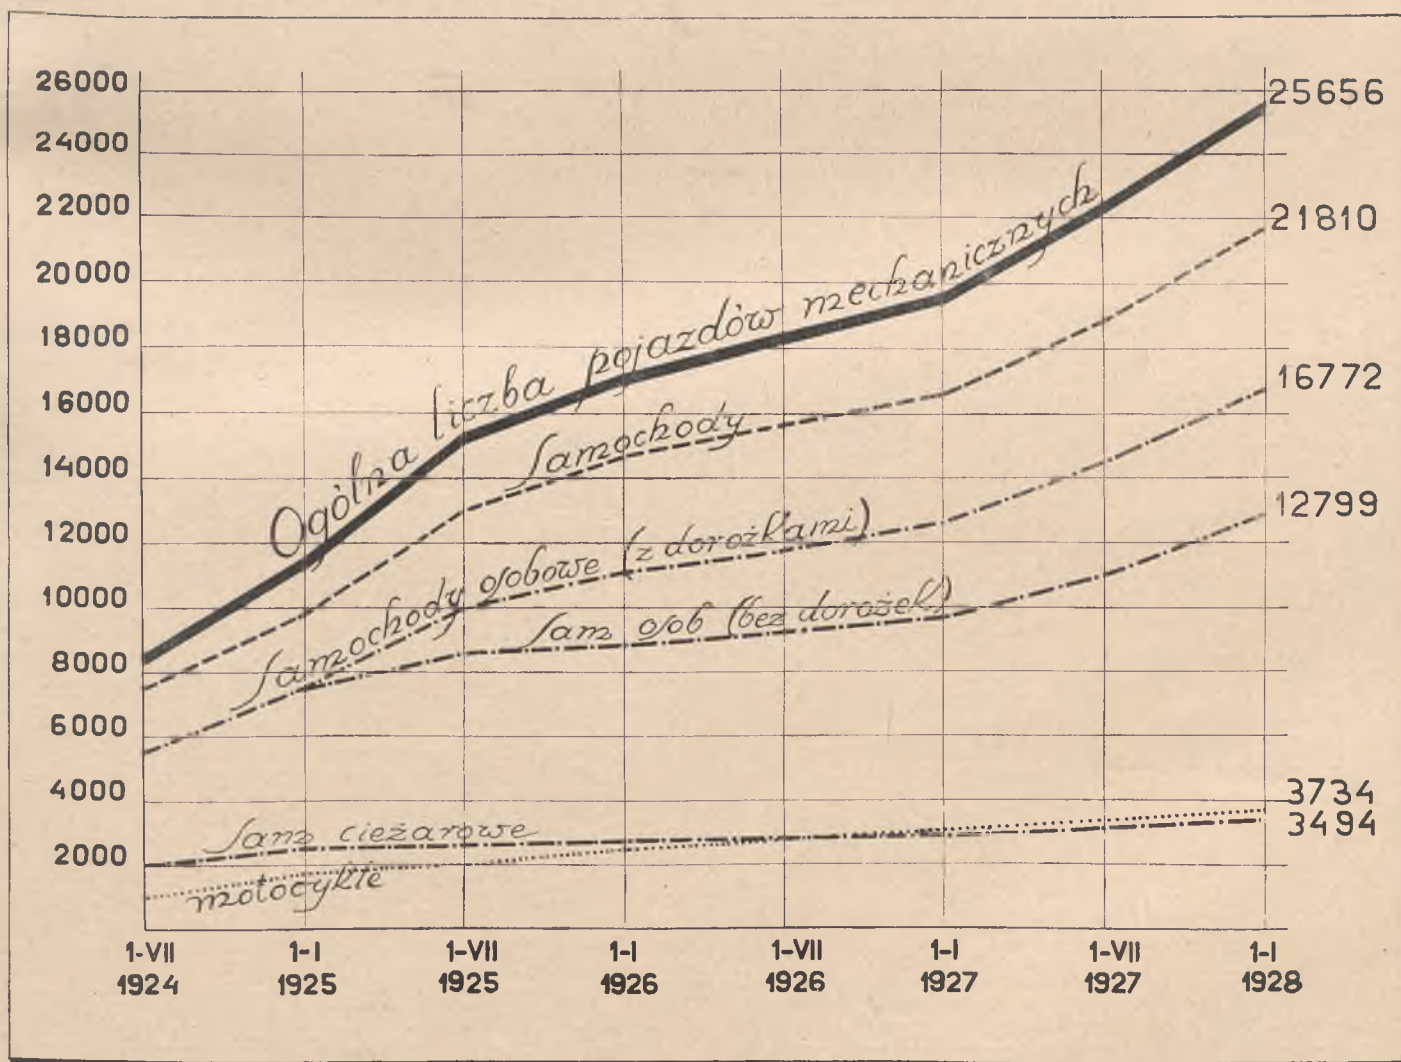 26000
24000
22000
20000
18000
16000
14000
12000
10000
8000
6000
4000
2000
25656
21810
16772
12799
3734
3494
Ogólna liczba pojazdów mechanicznych
Samochody
Samochody osobowe (z dorożkami)
Sam osob (bez dorożek)
Sam cieżarowe
motocykle
1-VII 1-I 1-VII 1-I 1-VII 1-I 1-VII 1-I
1924 1925 1925 1926 1926 1927 1927 1928